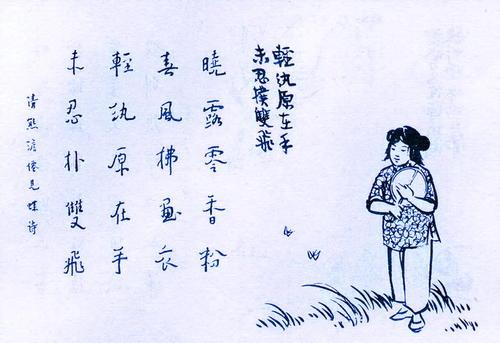 輕紈原在手
未忍撲雙飛
曉露零香粉
春風拂畫衣
輕紈原在手
未忍扑雙飛
清熊澹僊見蝶詩